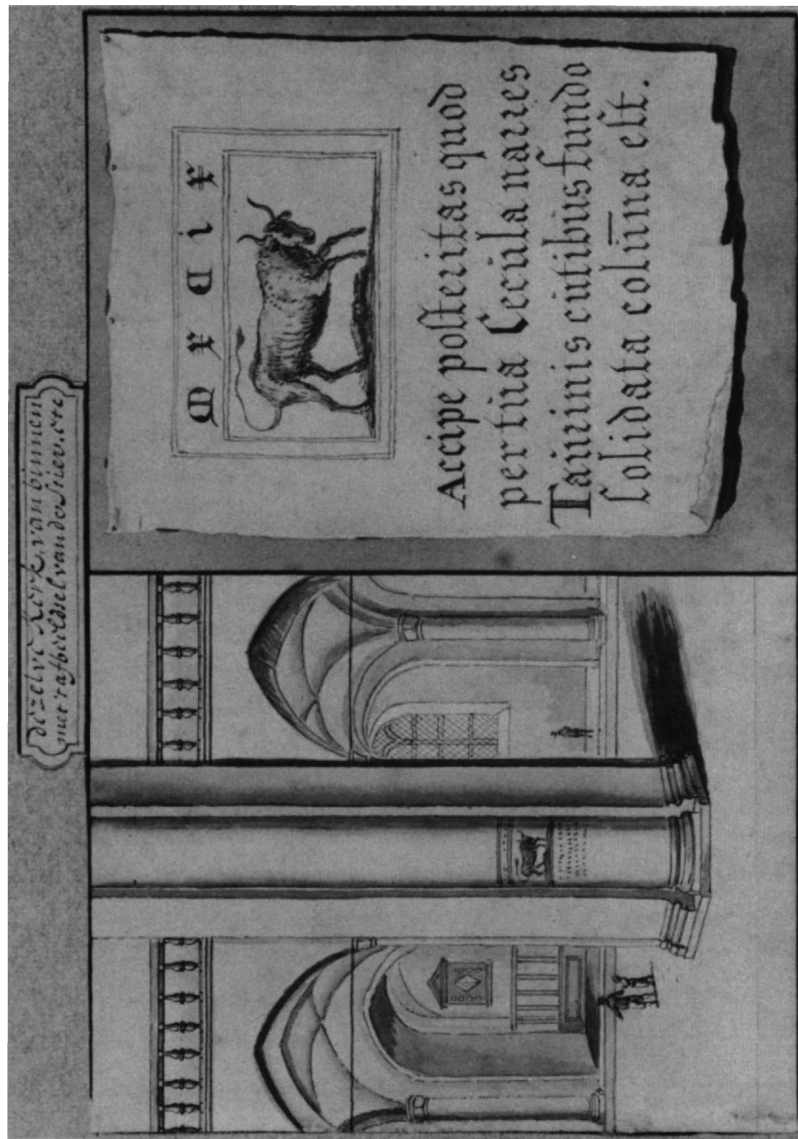 dezelve Kerk, van binnen
met 't afbeeldsel van de Stier. etc
M X C I X
Accipe posteritas quod
per tua Cecula narres
Taurinis cutibus fundo
Solidata colūna est.